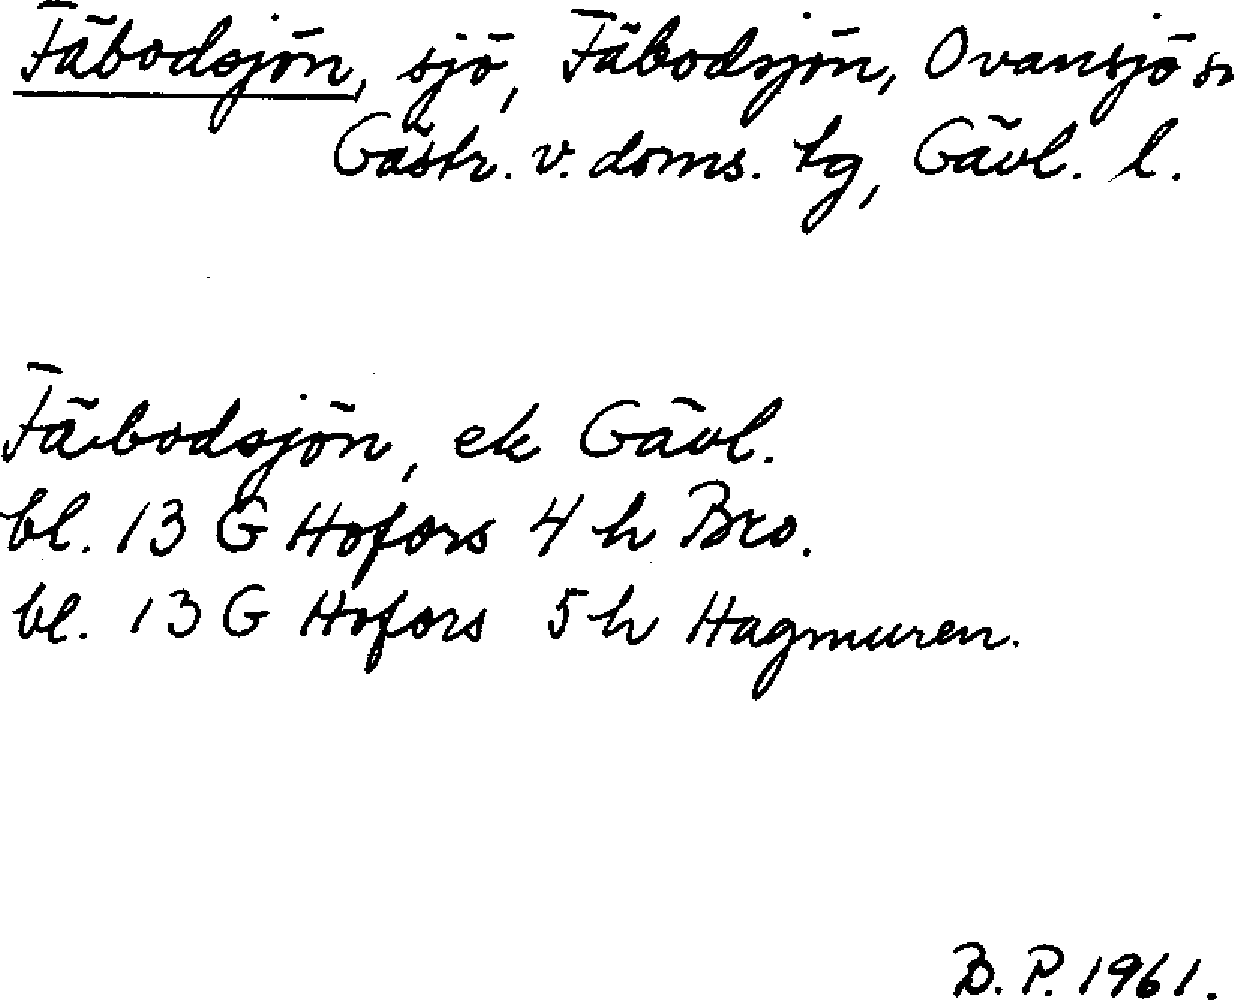 Fäbodsjön, sjö, Fäbodsjön, Ovansjö sn
Gästr. v. doms. tg, Gävl. l.
Fäbodsjön, ek Gävl.
bl. 13 G Hofors 4 h Bro.
bl. 13 G Hofors 5 h Hagmuren.
B. P. 1961.